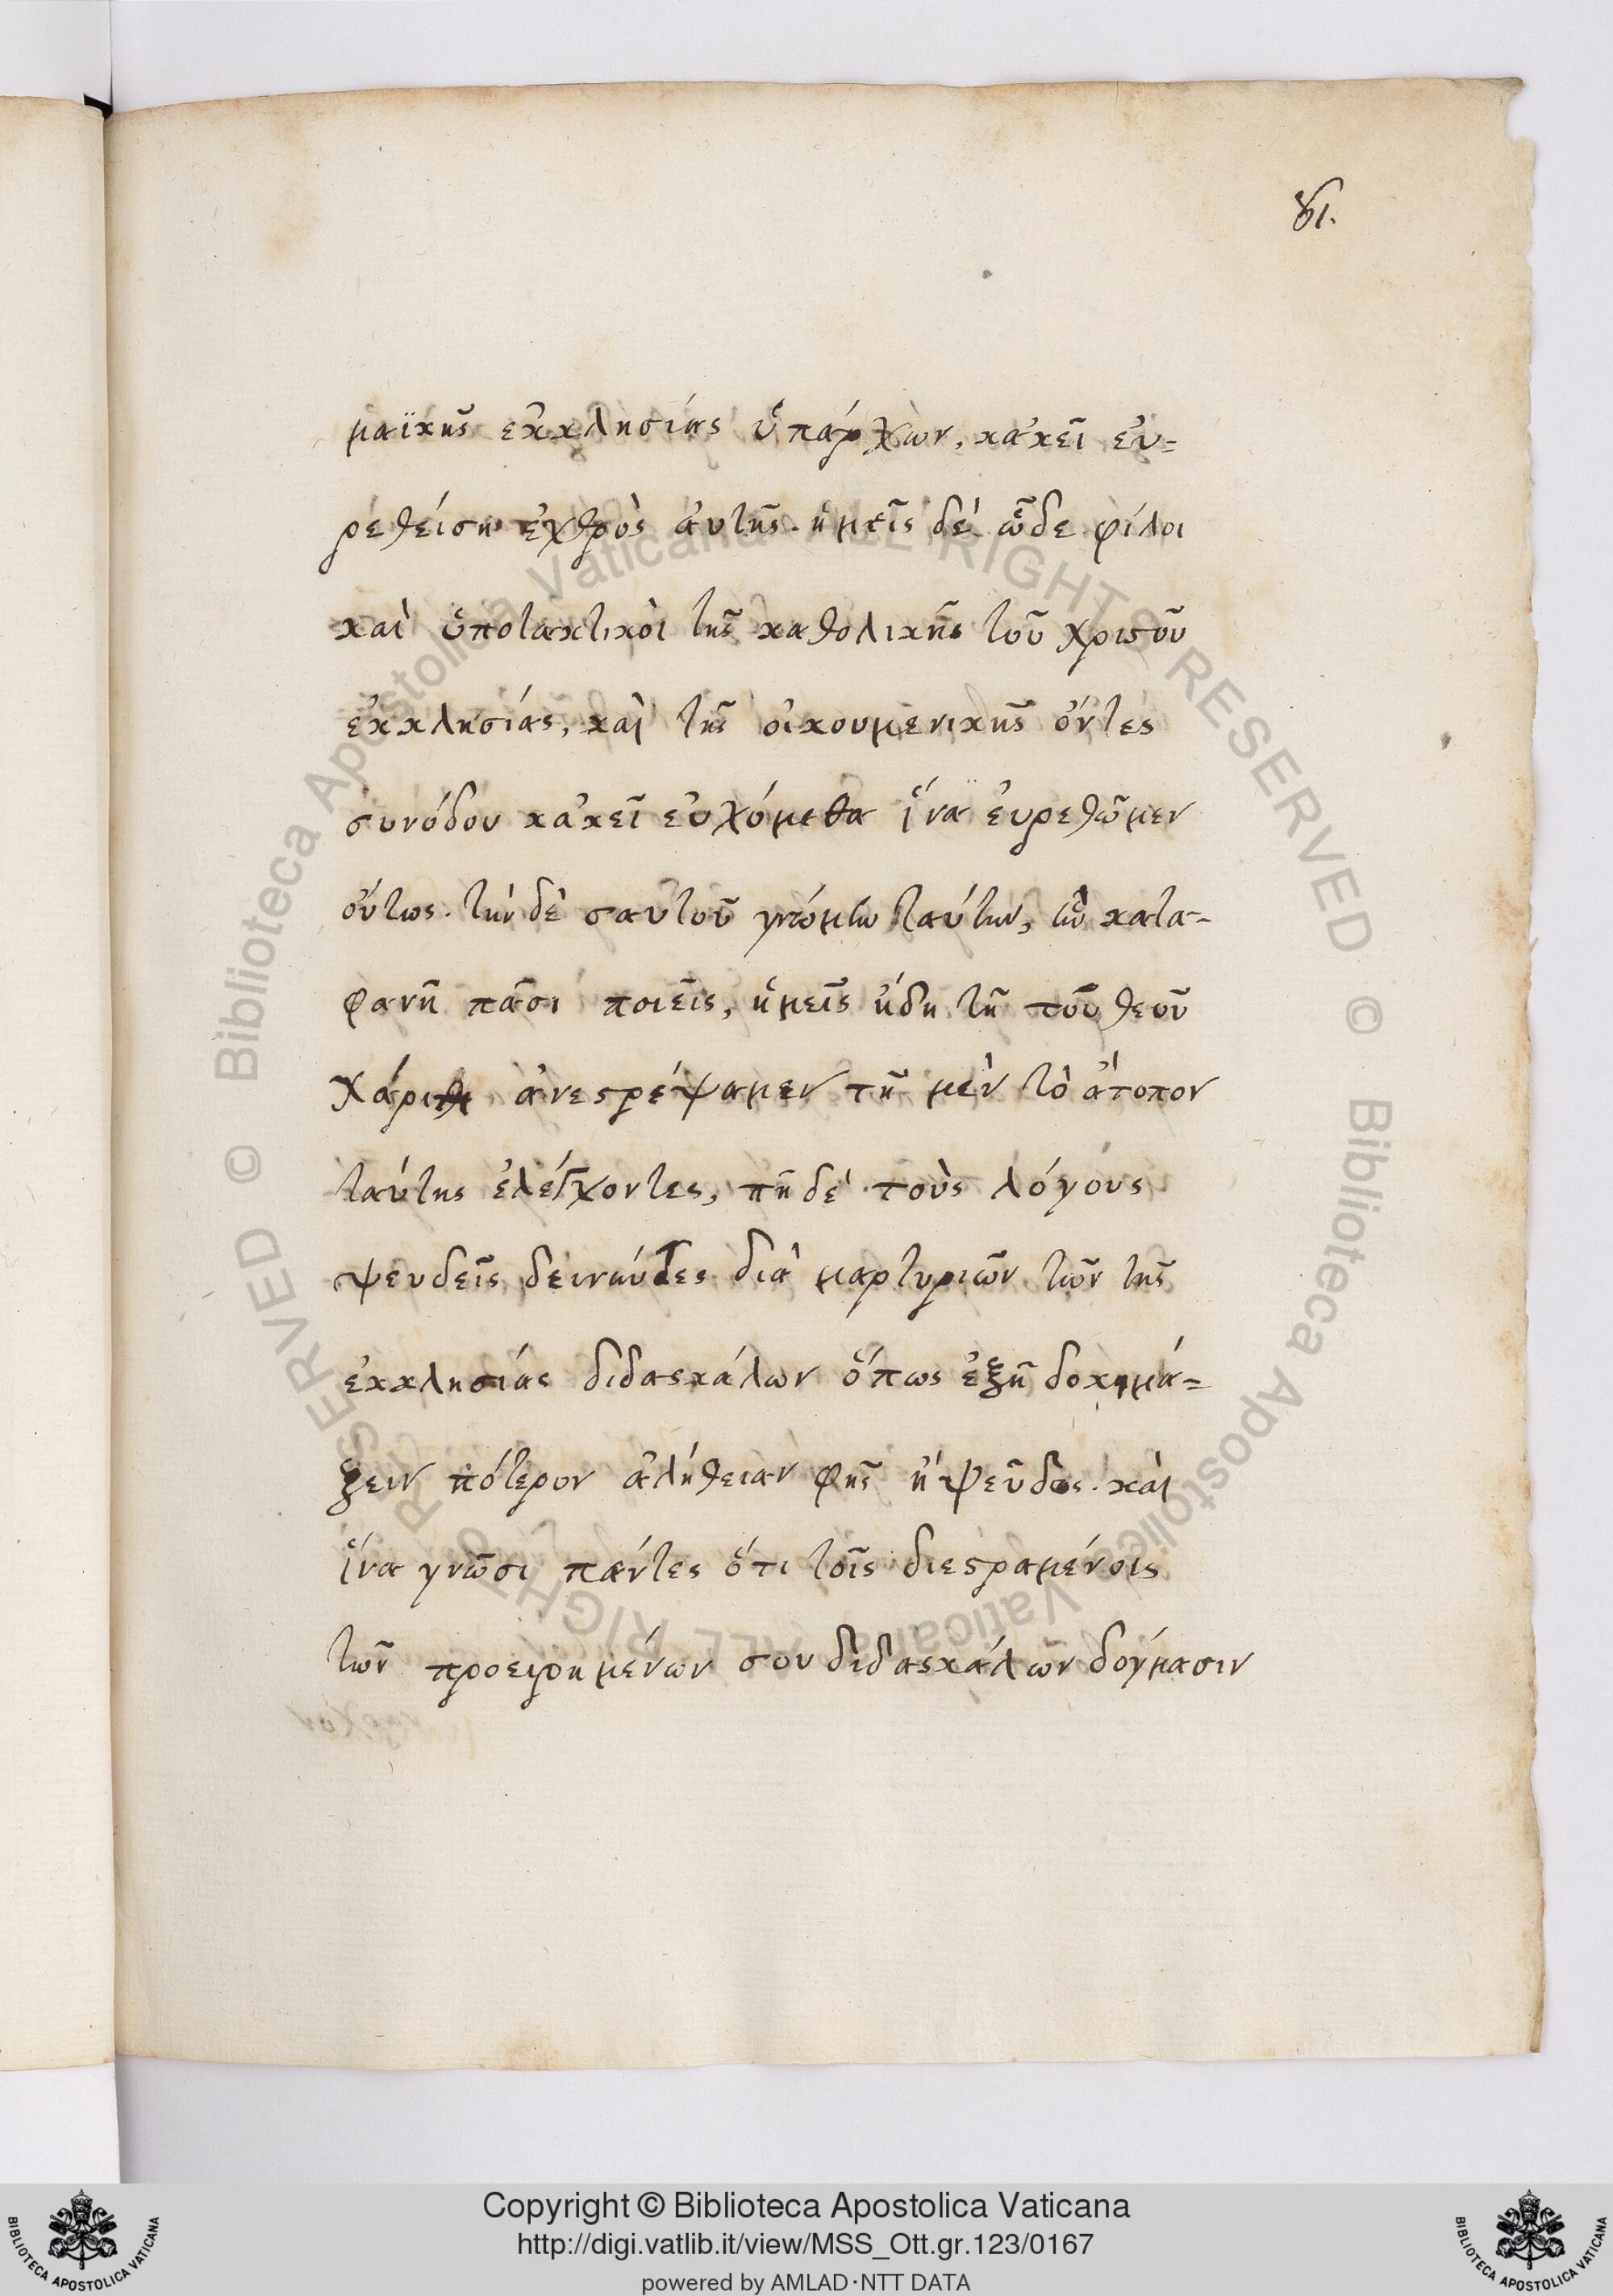 81.
μαϊκῆς ἐκκλησίας ὑπάρχων, κἀκεῖ εὑ=
ρεθείση ἐχθρὸς ἀυτῆς. ἡμεῖς δὲ ὧδε φίλοι
καὶ ὑποτακτικὸι τῆς καθολικῆς τοῦ χριστοῦ
ἐκκλησίας, καὶ τῆς οἰκουμενικῆς ὄντες
συνόδου κἀκεῖ εὐχόμεθα ἵνα ἑυρεθῶμεν
οὕτως. τὴν δὲ σαυτοῦ γνώμην ταύτην, ἣν κατα-
φανῆ πᾶσι ποιεῖς, ἡμεῖς ἤδη τῆ τοῦ θεοῦ
χάριτι ἀνεστρέψαμεν τῆ μὲν τὸ ἄτοπον
ταύτης ἐλέγχοντες, πῆ δὲ τοὺς λόγους
ψευδεῖς δεικνύντες διὰ μαρτυριῶν τῶν τῆς
ἐκκλησίας διδασκάλων ὅπως ἐξῆ δοκιμά=
ζειν πότερον ἀλήθειαν φῆς ἢ ψεῦδος. καὶ
ἵνα γνῶσι πάντες ὅτι τοῖς διεστραμένοις
τῶν προειρημένων σου διδασκάλων δόγμασιν
Copyright © Biblioteca Apostolica Vaticana
http://digi.vatlib.it/view/MSS_Ott.gr.123/0167
powered by AMLAD·NTT DATA
© Biblioteca Apostolica Vaticana ALL RIGHTS RESERVED
© Biblioteca Apostolica Vaticana ALL RIGHTS RESERVED
BIBLIOTECA APOSTOLICA VATICANA
BIBLIOTECA APOSTOLICA VATICANA